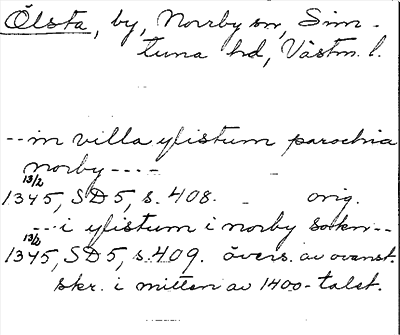 Ölsta, by, Norrby sn, Sim-
tuna hd, Västm. l.
--in villa ylistum parochia
norby ----
13/2
1345, SD 5, s. 408. - orig.
--- i ylistum i norby sokn --
13/2
1345, SD 5, s. 409. övers. av ovanst.
skr. i mitten av 1400-talet.